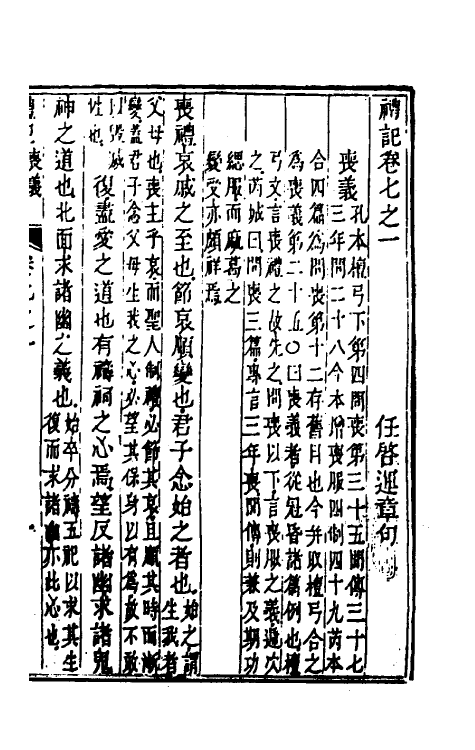 禮記卷七之一
任啓運章句
喪義孔本檀弓下第四問喪第三十五閒傳三十七
三年問二十八今本增喪服四制四十九芮本
合四篇爲問喪第十二存舊目也今并取檀弓合之
爲喪義第二十五〇曰喪義者從冠昏諸篇例也檀
弓文言喪禮之故先之問喪以下言喪服之義遞次
之芮城曰問喪三篇專言三年喪閒傳則兼及期功
緦服而麻葛之
變受亦頗詳焉
喪禮哀戚之至也節哀順變也君子念始之者也始之謂生我者
父母也喪主乎哀而聖人制禮必節其哀且順其時而漸
變蓋君子念父母生我之心必望其保身以有爲故不敢
以毀滅
性也復盡愛之道也有禱祠之心焉望反諸幽求諸鬼
神之道也北面求諸幽之義也始卒分禱五祀以求其生
復而求諸幽亦此心也
禮記喪義
卷七之一